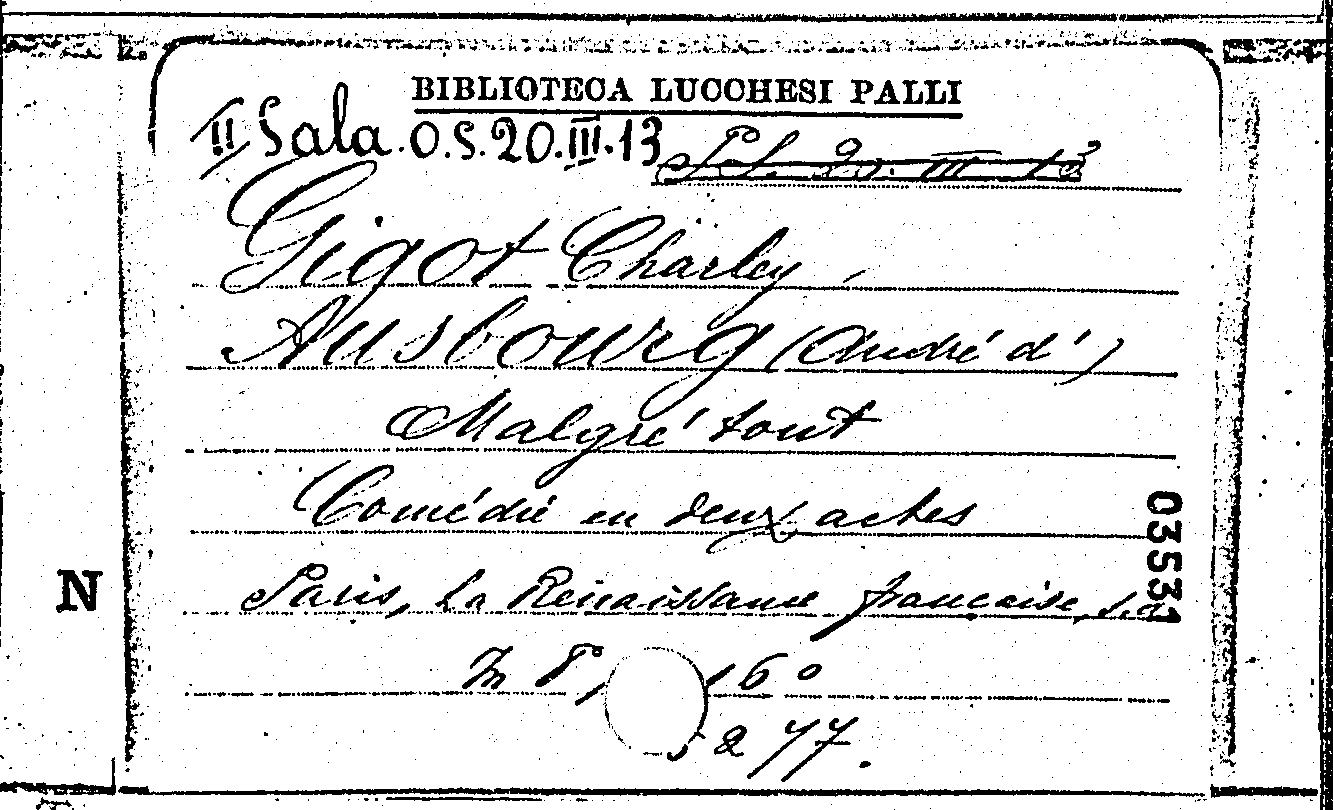 BIBLIOTECA LUCCHESI PALLI
II Sala. O.S. 20. III. 13
20. III 13
Gigot Charley,
Ausbourg (André d')
Malgré tout
Comédie en deux actes
Paris, La Renaissance française, s.a
In 8°, 16°
5277.
03531
N